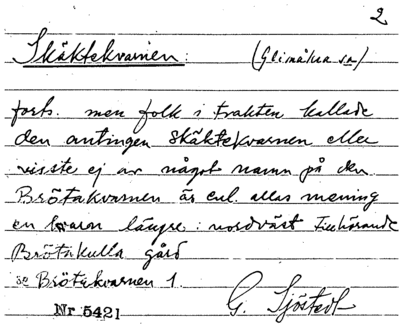 2
Skäktekvarnen: (Glimåkra sn)
forts. men folk i trakten kallade
den antingen Skäktekvarnen eller
visste ej av något namn på den
Brötakvarnen är enl. allas mening
en kvarn längre i nordväst tillhörande
Brötakulla gård
se Brötakvarnen 1
Nr 5421 G. Sjöstedt